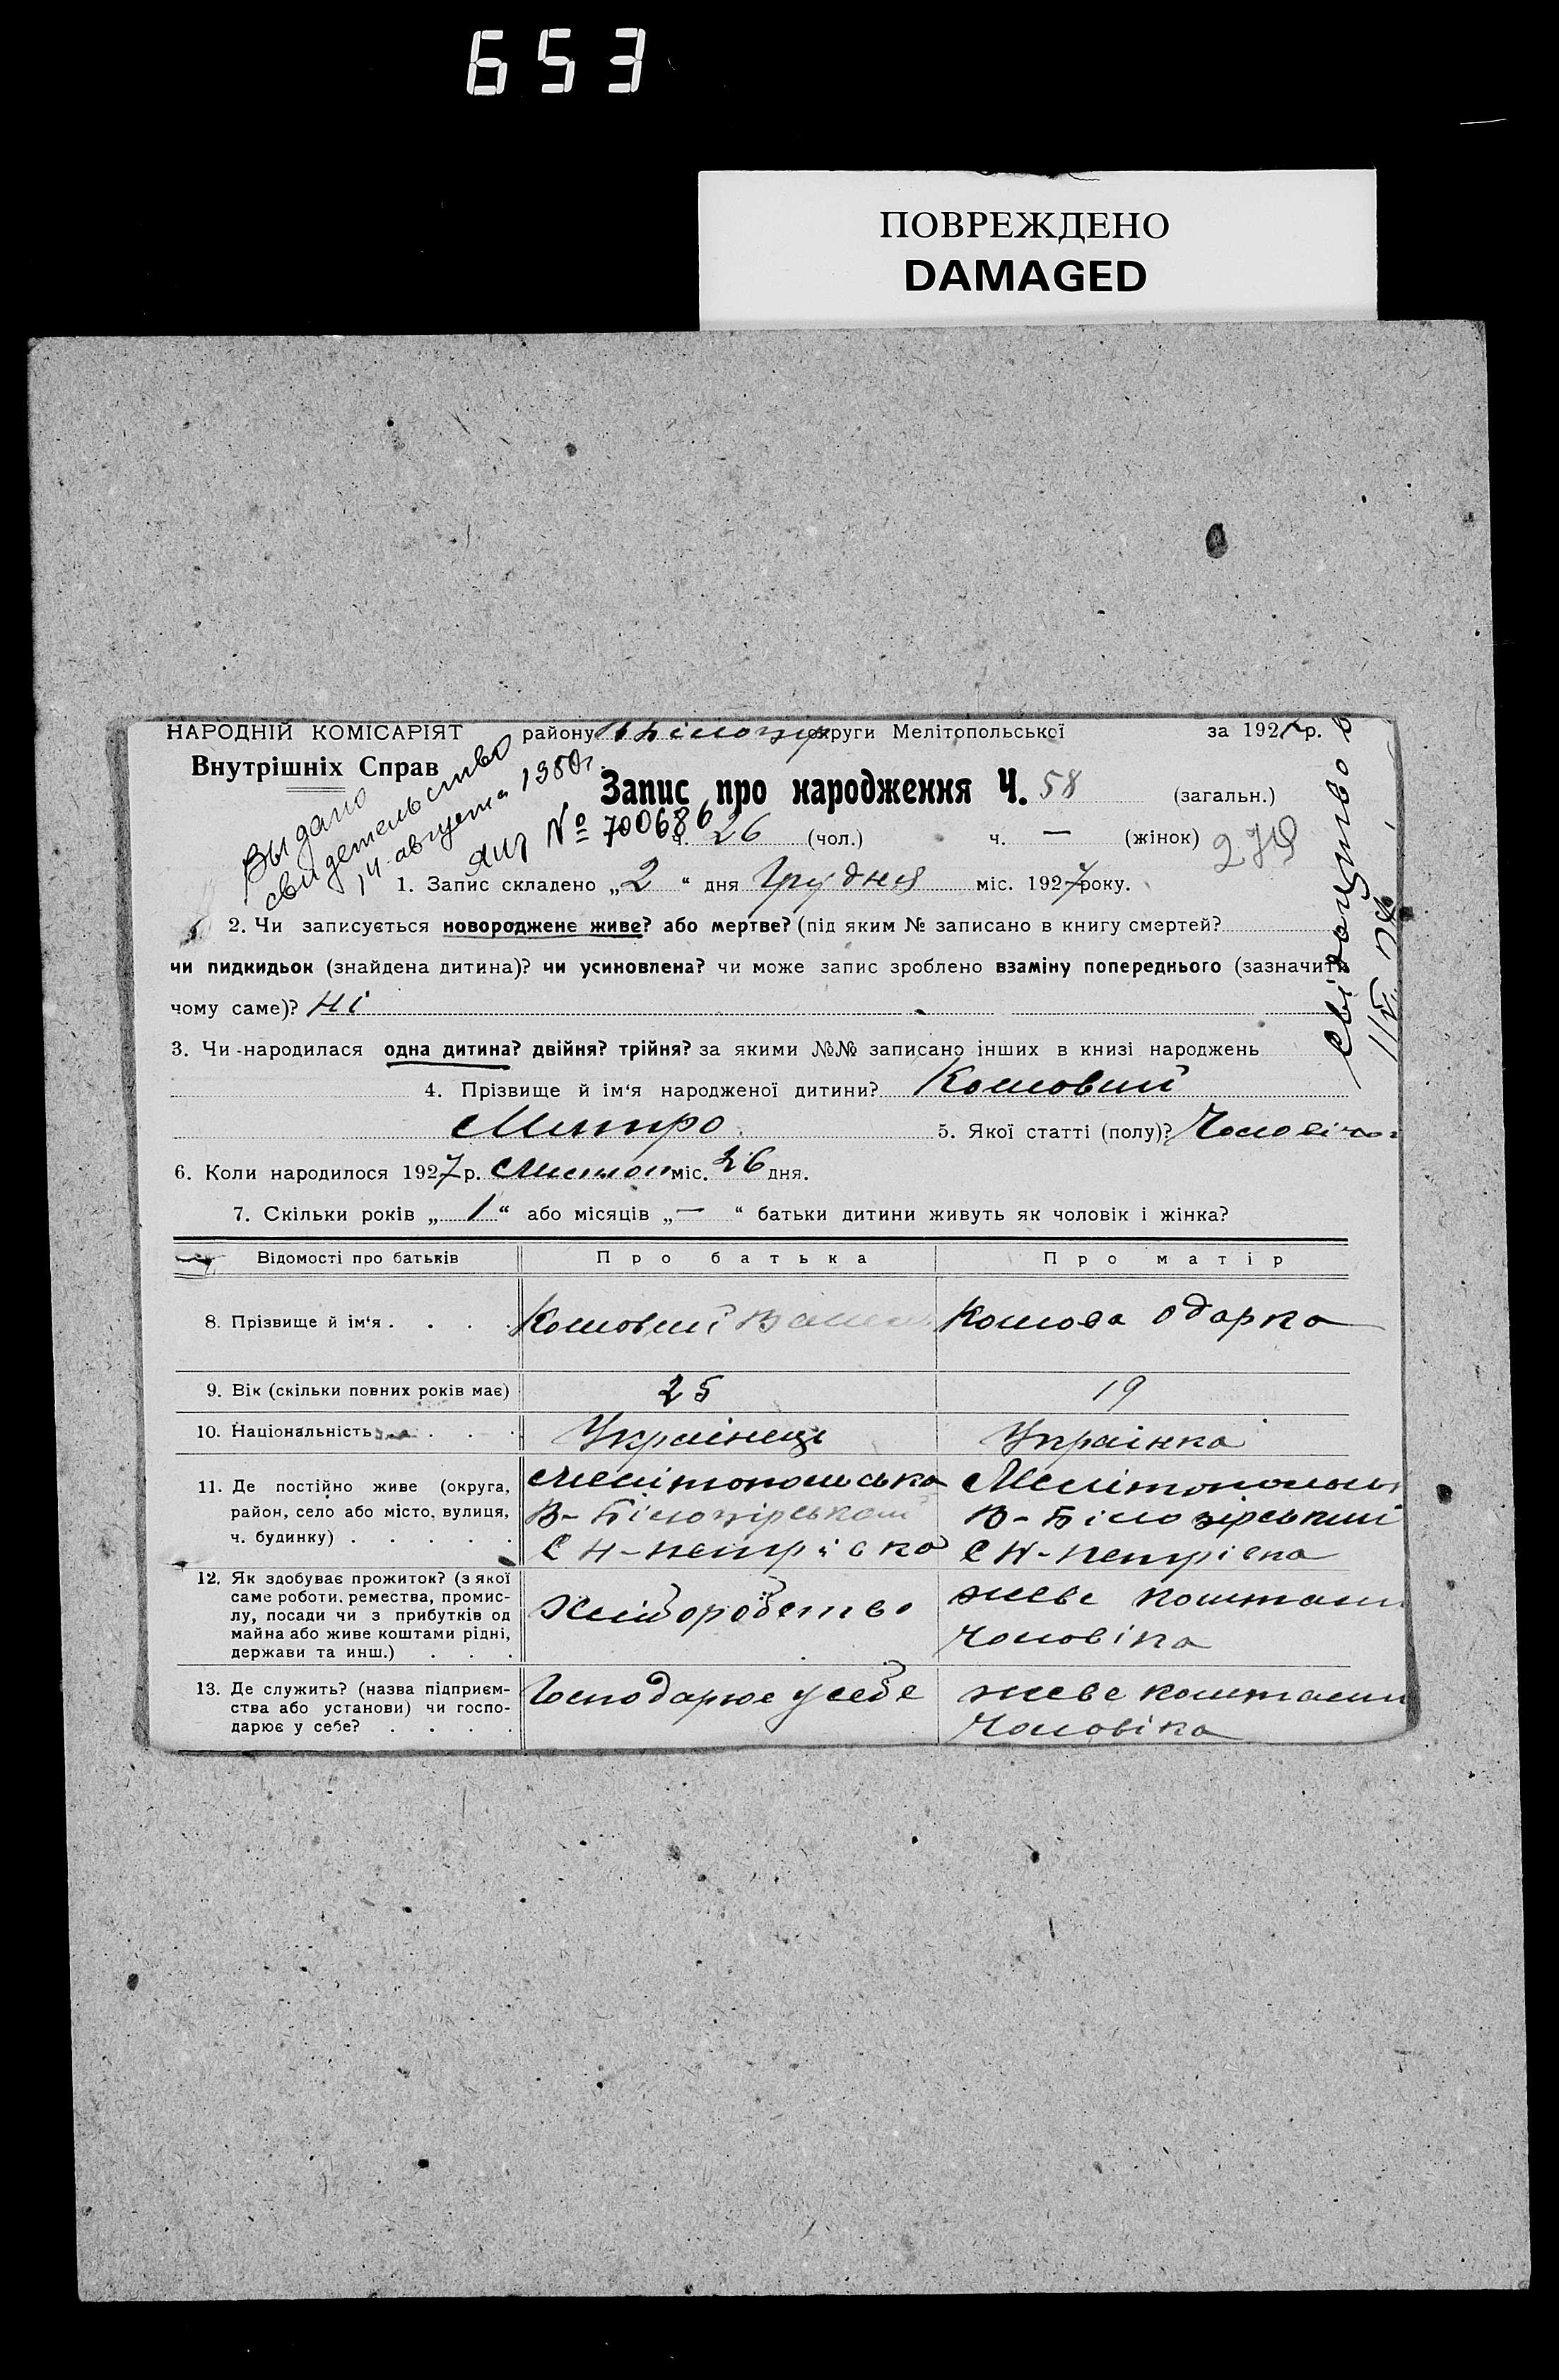 653
ПОВРЕЖДЕНО
DAMAGED
НАРОДНІЙ КОМІСАРІЯТ району округи Мелітопольської за 1927 р.
Внутрішніх Справ
Выдано
свидетельство
14 августа 1980г.
№ 700686
Запис про народження Ч. 58 (загальн.)
ч. 26 (чол.) ч. — (жінок) 279
1. Запис складено „2“ дня Грудня міс. 1927 року.
2. Чи записується новороджене живе? або мертве? (під яким № записано в книгу смертей?
чи пидкидьок (знайдена дитина)? чи усиновлена? чи може запис зроблено взаміну попереднього (зазначити
чому саме)? Ні
3. Чи народилася одна дитина? двійня? трійня? за якими №№ записано інших в книзі народжень
4. Прізвище й ім‘я народженої дитини? Кошовий
Митро. 5. Якої статті (полу)?
6. Коли народилося 1927 р. Листоп міс. 26 дня.
7. Скільки років „1“ або місяців „—“ батьки дитини живуть як чоловік і жінка?
Відомості про батьків Про батька Про матір
8. Прізвище й ім‘я . . . . Кошовий Кошова Одарка
9. Вік (скільки повних років має) 25 19
10. Національність . . . Українець Українка
11. Де постійно живе (округа,
район, село або місто, вулиця,
ч. будинку) . . . . .
Мелітопольська
В-Білозірський
С Н-Петрівка
Мелітопольсь
В-Білозірський
С Н-Петрівка
12. Як здобуває прожиток? (з якої
саме роботи, ремества, промис-
лу, посади чи з прибутків од
майна або живе коштами рідні,
держави та инш.) . . .
Хліборобство
живе коштами
чоловіка
13. Де служить? (назва підприєм-
ства або установи) чи госпо-
дарює у себе? . . . .
Господарює у себе
живе коштами
чоловіка
Свідоцтво